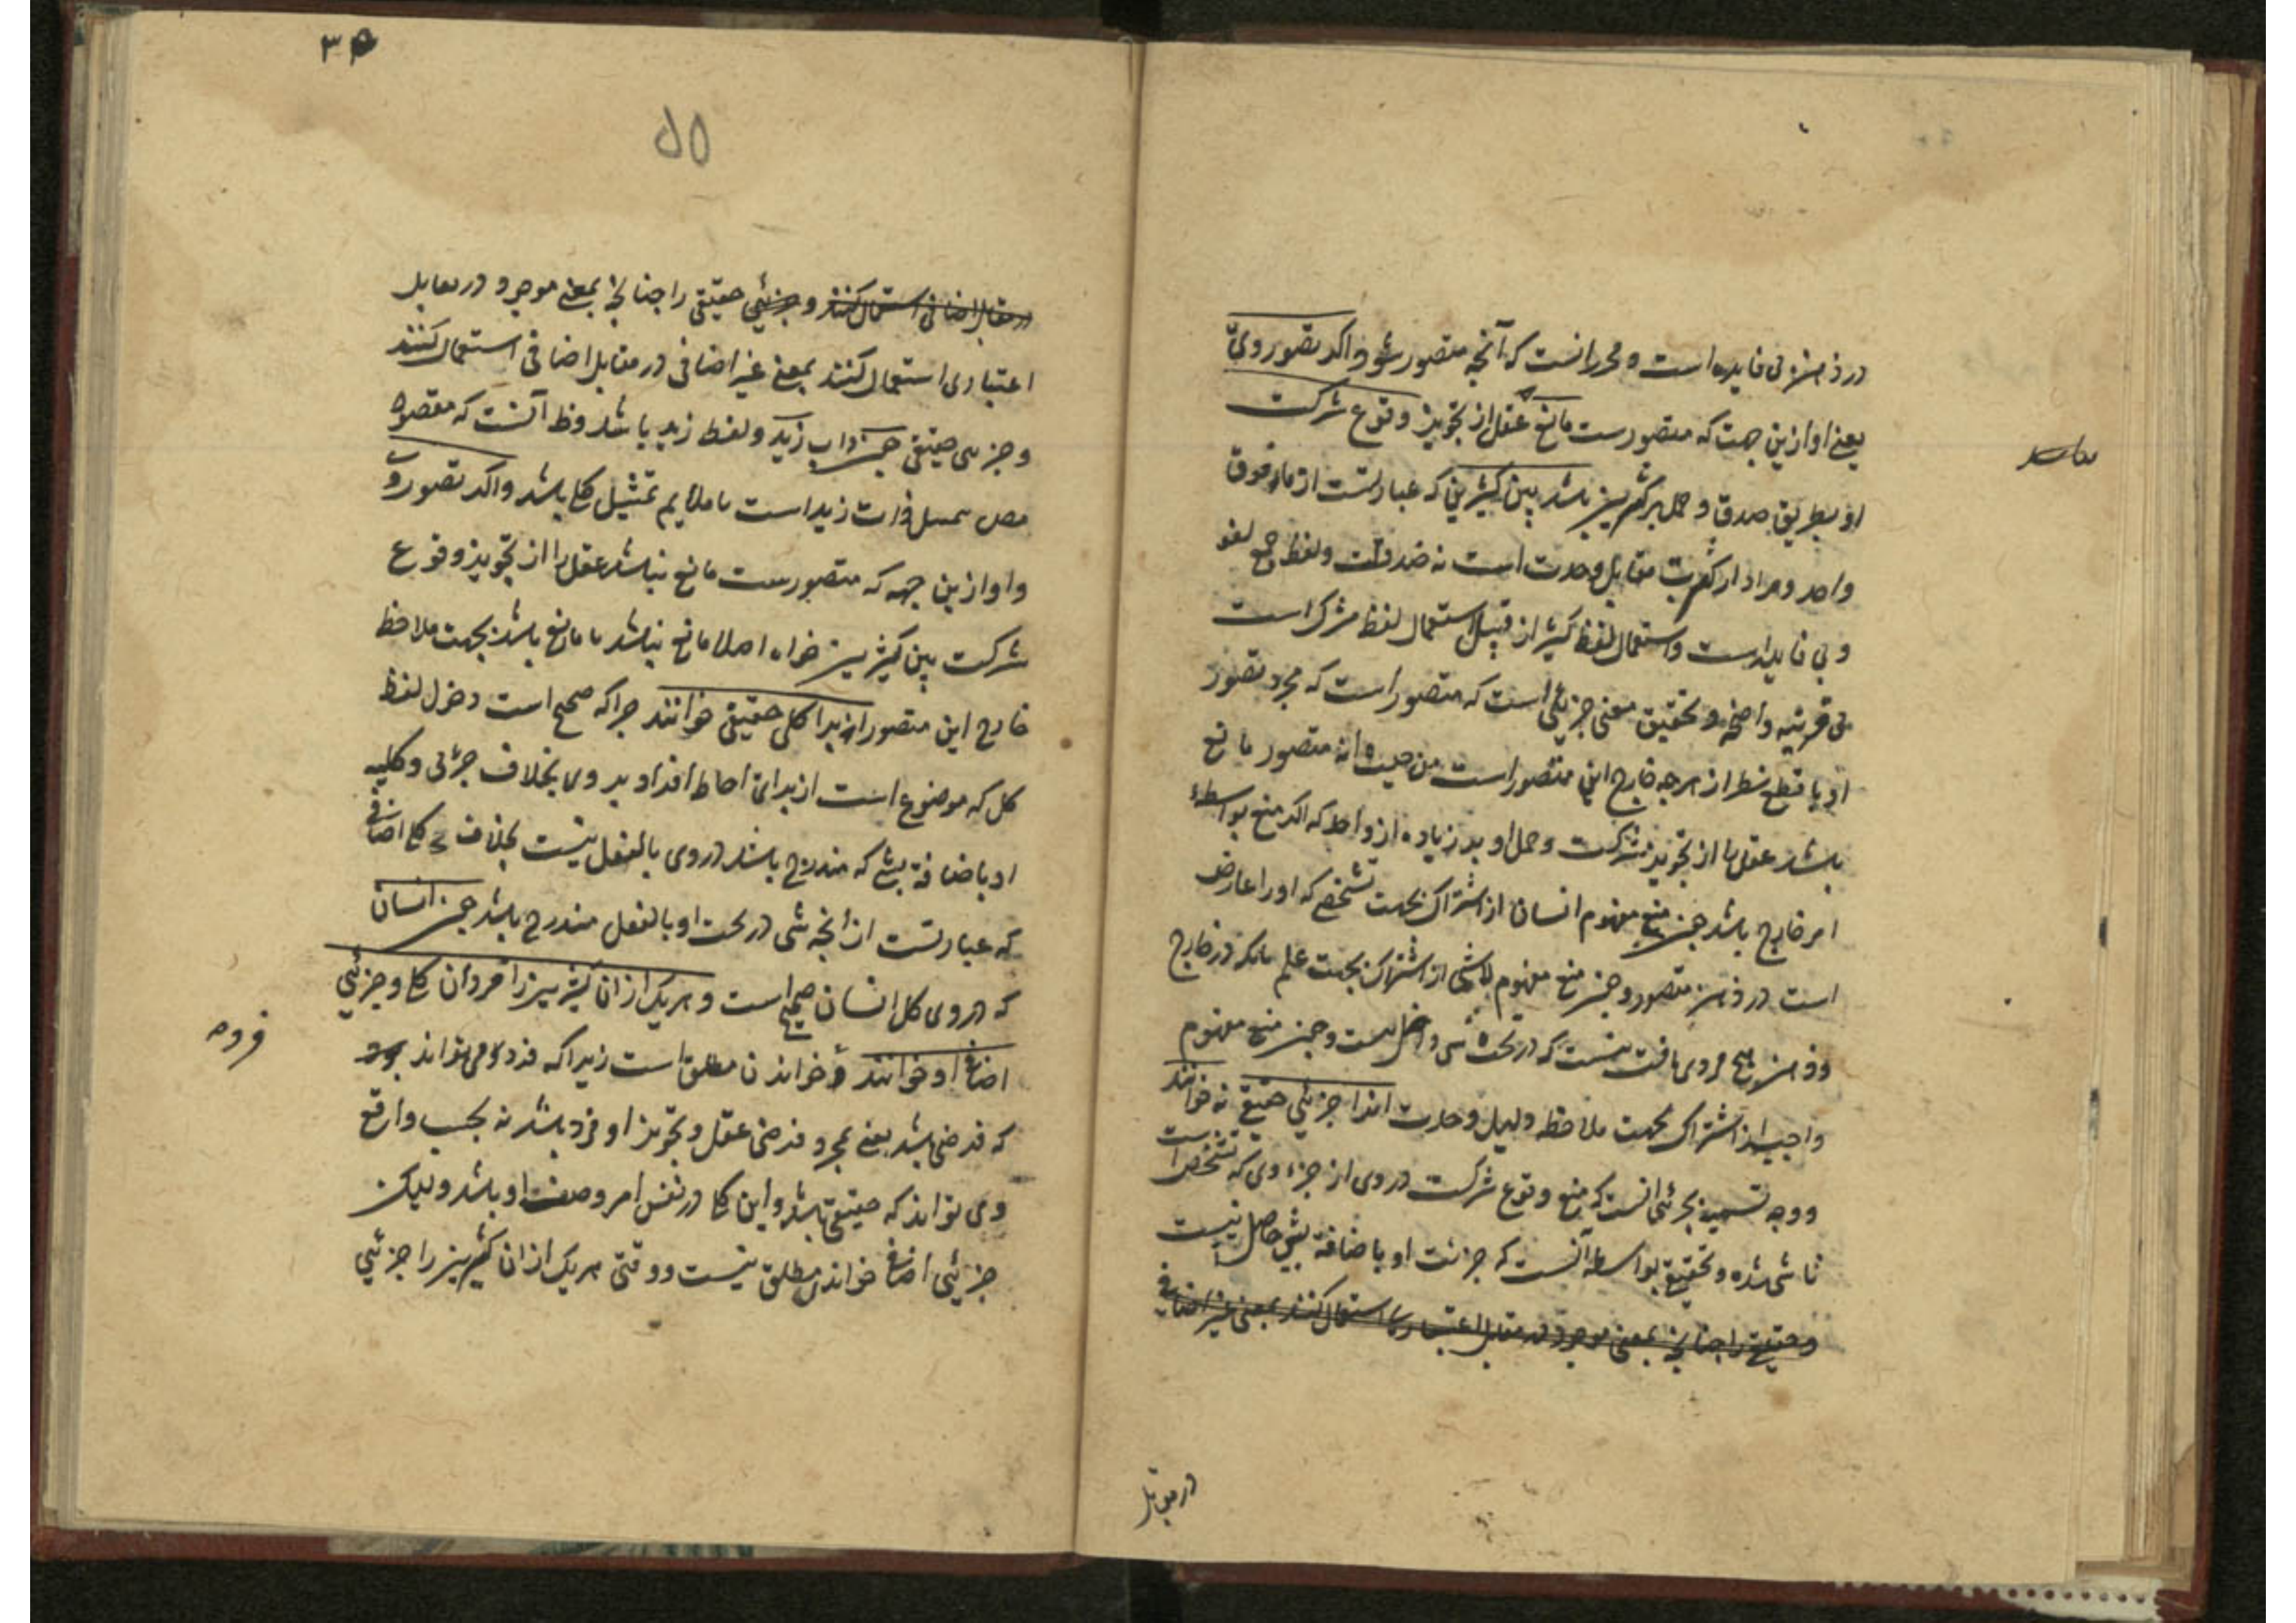 در ذهن بی فایده است و محرر آنست که آنچه متصور شود اگر تصور وی
یعنی او ازین جهت که متصورست مانع عقل از تجویز وقوع شرکت
او بطریق صدق و حمل بر کثیرین باشد بین کثیرین که عبارتست از ما فوق
واحد و مراد از کثرت مقابل وحدت است نه ضد قلت و لفظ جمع لغو
و بی فایده است و استعمال لفظ کثیر از قبیل استعمال لفظ مشترک است
بی قرینه واضحه و تحقیق معنی جزئی است که متصور است که مجرد تصور
او با قطع نظر از هرچه خارج این متصور است من حیث انه متصور مانع
باشد عقل را از تجویز شرکت و حمل او بر زیاده از واحد که اگر منع بواسطهٔ
امر خارج باشد چون منع مفهوم انسان از اشتراک بجهت تشخصی که او را عارض
است در ذهن متصور و چون منع مفهوم لاشی از اشتراک بجهت علم بانکه در خارج
و ذهن هیچ فردی یافت نیست که در تحت شی داخل نیست و چون منع مفهوم
واجب از اشتراک بجهت ملاحظه دلیل وحدت انرا جزئی حقیقی نه خوانند
و وجه تسمیه بجزئی انست که منع وقوع شرکت در وی از جزء وی که تشخص است
ناشی شده و تحقیق بواسطه آنست که جزئیت او باضافه بشی حاصل نیست
و حقیقی را چنانچه بمعنی موجود در مقابل اعتباری استعمال کنند بمعنی غیر اضافی
در مقابل
در مقابل اضافی استعمال کنند و جزئی حقیقی را چنانچه بمعنی موجود در مقابل
اعتباری استعمال کنند بمعنی غیر اضافی در مقابل اضافی استعمال کنند
و جزئی حقیقی چون ذات زید و لفظ زید باشد و ظ آنست که مقصود
ذات زید است تا ملایم تمثیل کلی باشد و اگر تصور وی
و او ازین جهه که متصورست مانع نباشد عقل را از تجویز وقوع
شرکت بین کثیرین خواه اصلا مانع نباشد یا مانع باشد بجهت ملاحظه
خارج این متصور انرا کلی حقیقی خوانند چرا که صحیح است دخول لفظ
کل که موضوع است از برای احاطه افراد بر وی بخلاف جزئی و کلیه
او باضافه بشی که مندرج باشد در وی بالفعل نیست بخلاف کلی اضافی
که عبارتست از آنچه شی در تحت او بالفعل مندرج باشد چون انسان
که در وی کل انسان صحیح است و هریک از ان کثیرین را فرد ان کلی و جزئی
اضافی او خوانند و خواندن مطلق است زیرا که فرد کلی می تواند بود
که فرضی باشد یعنی بمجرد فرض عقل و تجویز او فرد باشد نه بحسب واقع
و می تواند که حقیقی باشد و این کلی در نفس امر وصف او باشد ولیکن
جزئی اضافی خواندن مطلق نیست و وقتی هریک از ان کثیرین را جزئی